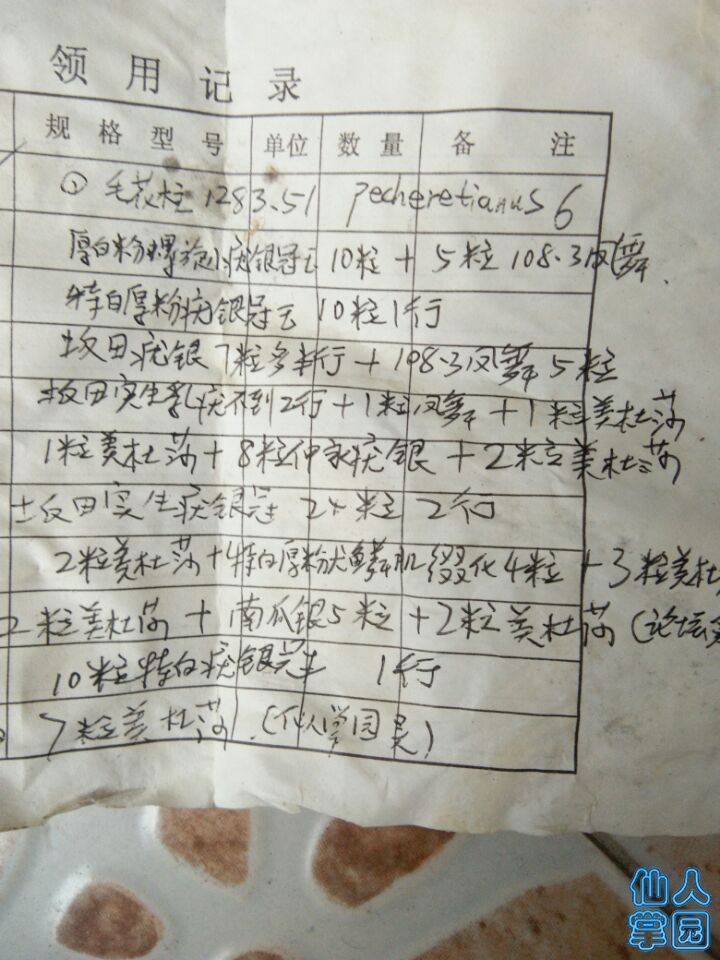 领用记录
规格型号 单位 数量 备注
① 毛花柱 1283.51 pecheretianus 6
厚白粉螺旋疣银冠玉 10粒 + 5粒 108.3凤舞
特白厚粉疣银冠玉 10粒 1行
坂田疣银 7粒多半行 + 108.3凤舞 5粒
坂田实生乳疣不到2行 + 1粒凤舞 + 1粒美杜莎
1粒美杜莎 + 8粒仲永疣银 + 2粒美杜莎
坂田实生疣银冠 24粒 2行
2粒美杜莎 + 特白厚粉状鳞肌缀化 4粒 + 3粒美杜
2粒美杜莎 + 南瓜银 5粒 + 2粒美杜莎 (论坛
10粒特白疣银冠 1行
7粒美杜莎 (仙人掌园
仙人掌园